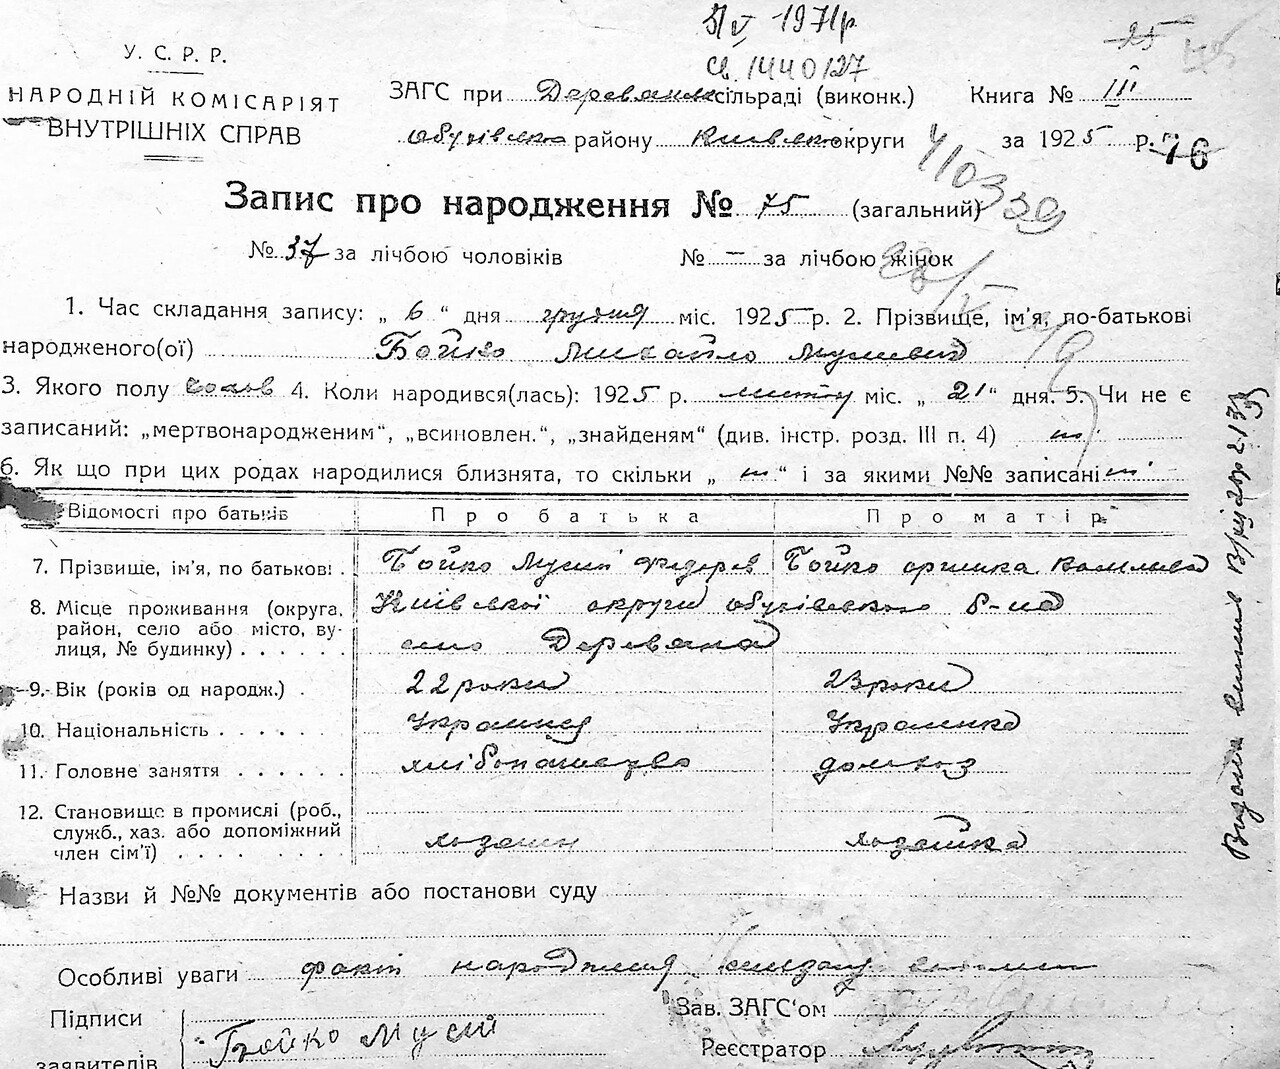 5/V 1971р
св. 1440127
25
У. С. Р. Р.
НАРОДНІЙ КОМІСАРІЯТ
ВНУТРІШНІХ СПРАВ
ЗАГС при Деревянск сільраді (виконк.) Книга № III
Обухівсько району Київсько округи за 1925 р. 76
410339
Запис про народження № 75 (загальний)
№ 37 за лічбою чоловіків № — за лічбою жінок
1. Час складання запису: „ 6 “ дня грудня міс. 1925 р. 2. Прізвище, ім'я, по-батькові
народженого(ої) Бойко Михайло Мусиевич
3. Якого полу чолов 4. Коли народився(лась): 1925 р. лютту міс. „ 21 “ дня. 5. Чи не є
записаний: „мертвонародженим“, „всиновлен.“, „знайденям“ (див. інстр. розд. III п. 4)
6. Як що при цих родах народилися близнята, то скільки „ “ і за якими №№ записані
Відомості про батьків Про батька Про матір
7. Прізвище, ім'я, по батькові . Бойко Мусій Федоров Бойко Оришка Василива
8. Місце проживання (округа, Київської округи Обухівського р-на
район, село або місто, ву- село Деревяна
лиця, № будинку) . . . . . .
9. Вік (років од народж.) . 22 роки 23 роки
10. Національність . . . . . . Українец Украинка
11. Головне заняття . . . . . . хлібопашество домхоз
12. Становище в промислі (роб.,
служб., хаз. або допоміжний хозяин хозяйка
член сім'ї) . . . . .
Назви й №№ документів або постанови суду
Особливі уваги факт народження
Підписи Зав. ЗАГС'ом
заявителів Бойко Мусій Реєстратор